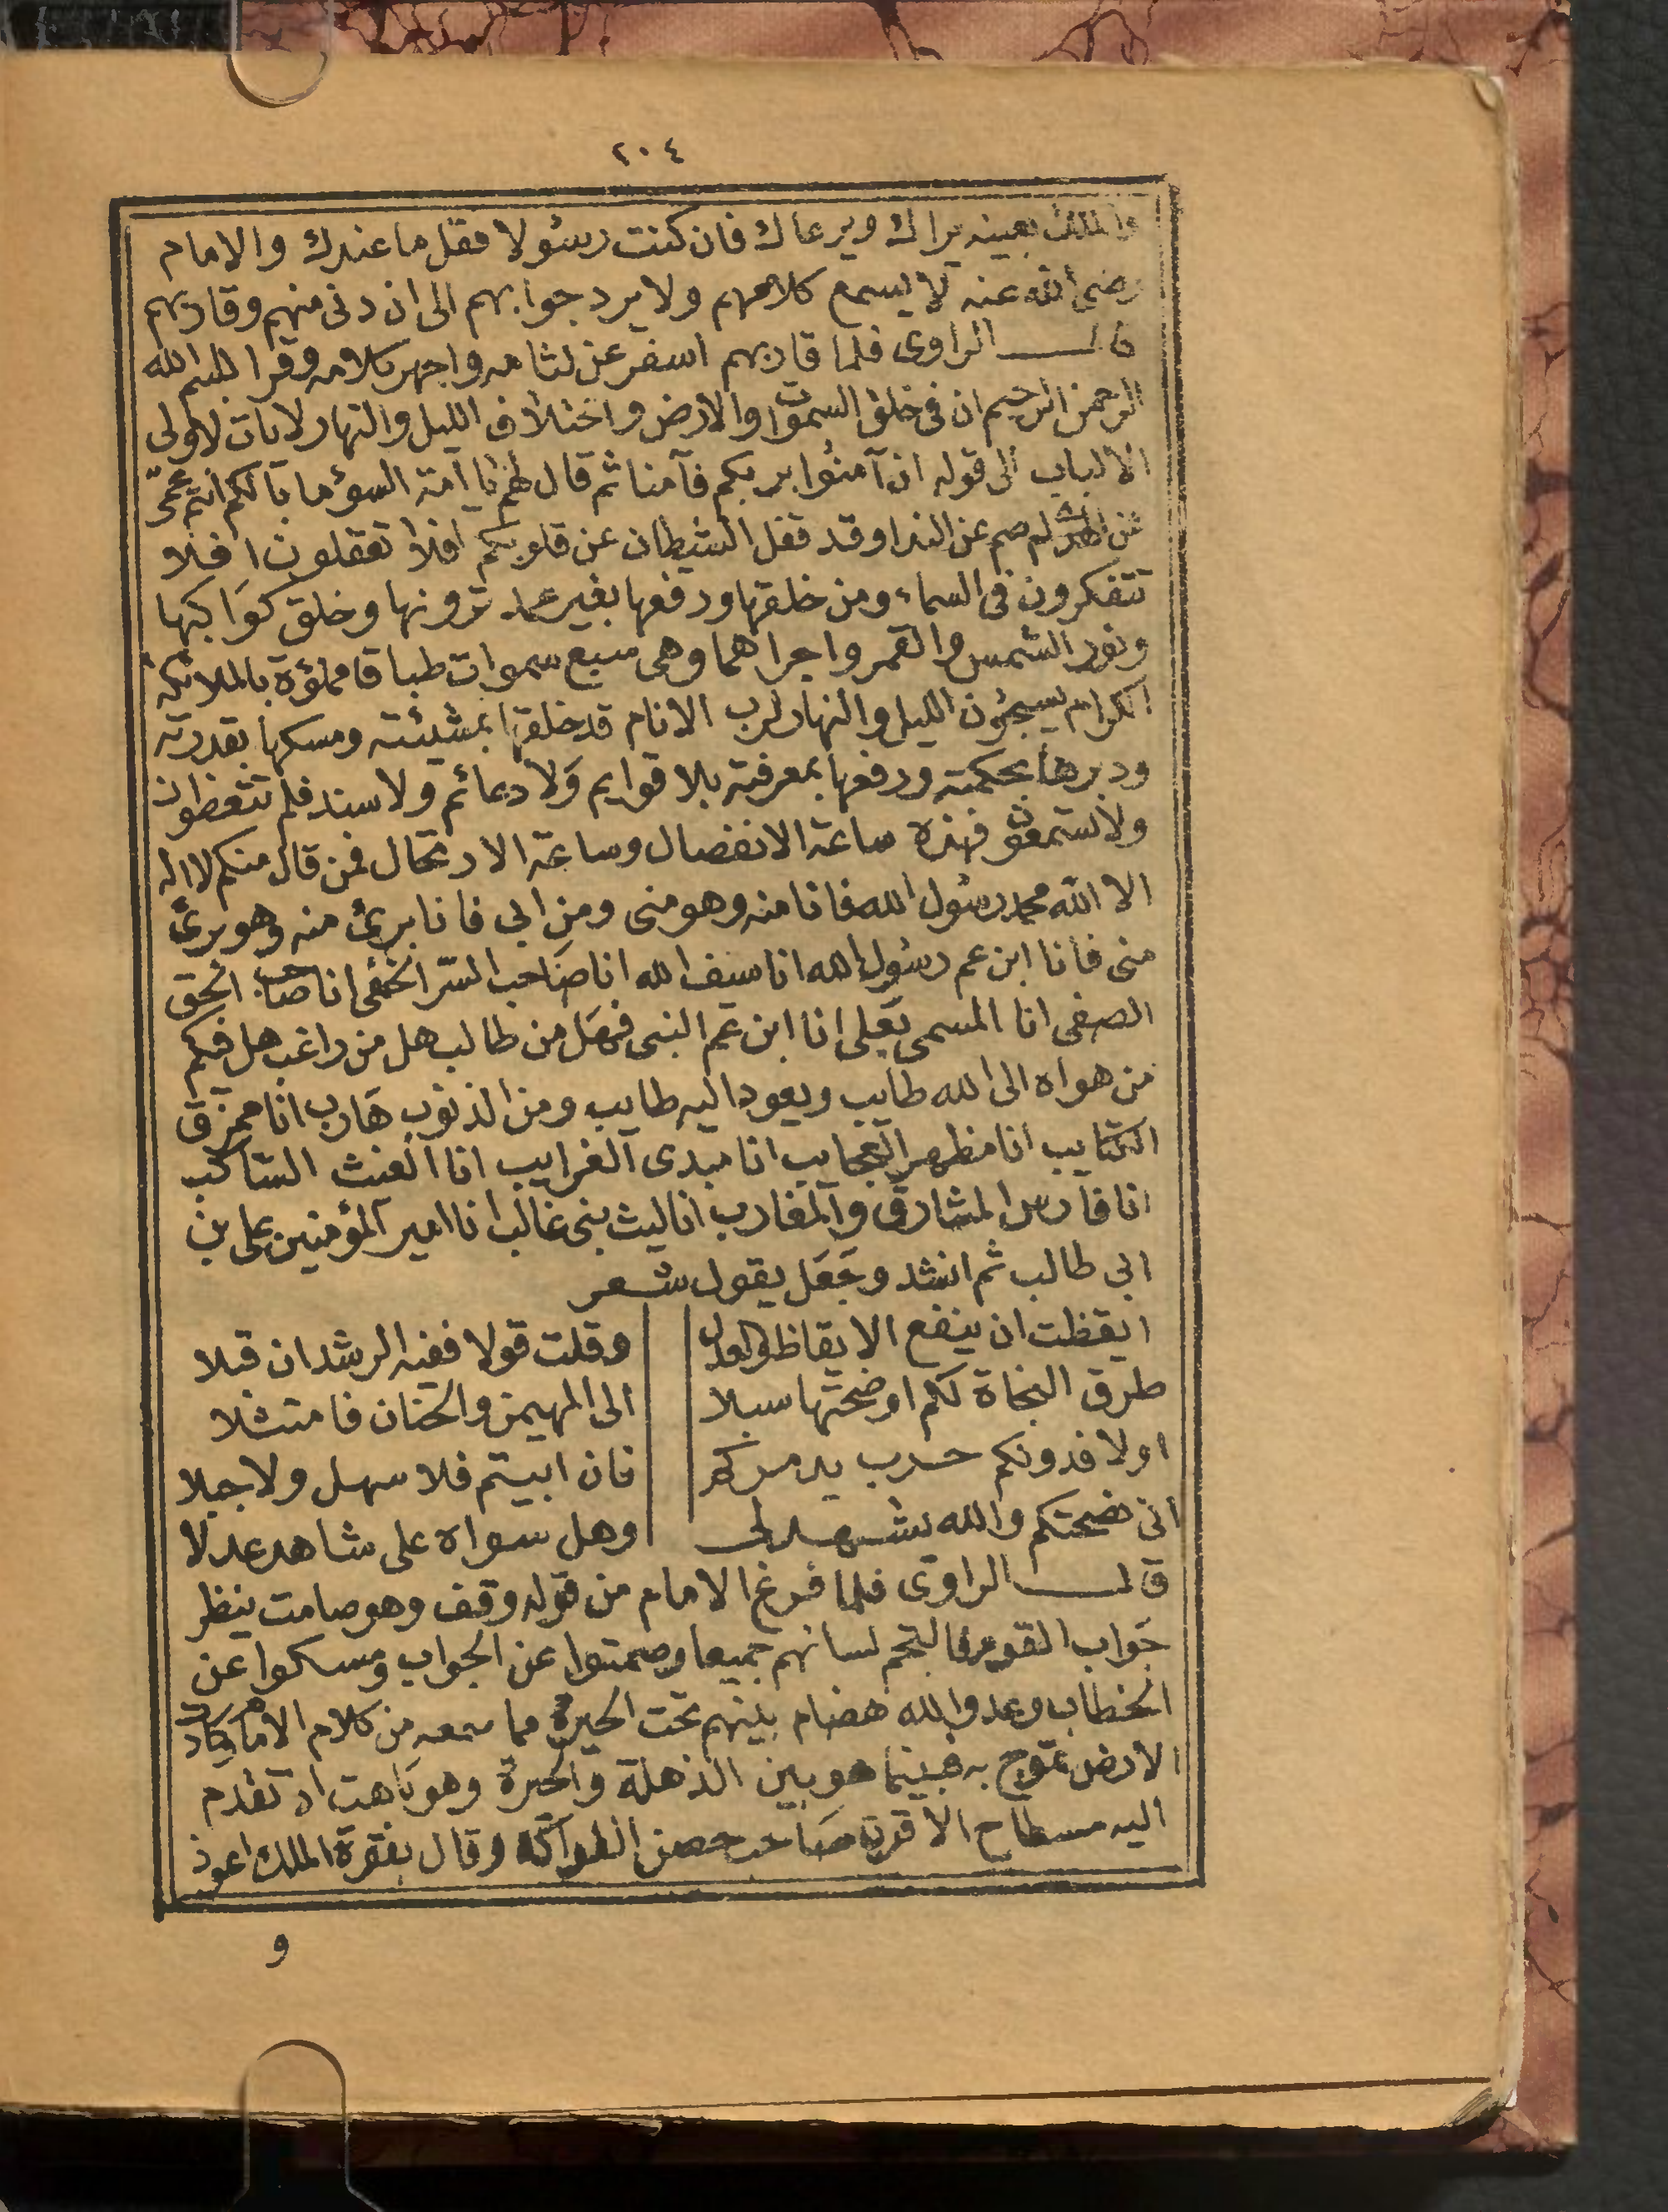 ٢٠٤
والملك بعينه يراك ويرعاك فان كنت رسولا فقل ما عندك والامام
رضى الله عنه لا يسمع كلامهم ولا يرد جوابهم الى ان دنى منهم وقاربهم
قال الراوى فلما قاربهم اسفر عن لثامه واجهر كلامه وقرا بسم الله
الرحمن الرحيم ان فى خلق السموات والارض واختلاف الليل والنهار لايات لاولى
الالباب الى قوله ان آمنوا بربكم فآمنا ثم قال لهم يا آمة السوء ما بالكم انتم عمى
عن لم صم عن الندا وقد قفل الشيطان عن قلوبكم افلا تعقلون افلا
تتفكرون فى السماء ومن خلقها ورفعها بغير عمد ترونها وخلق كواكبها
ونور الشمس والقمر واجراهما وهى سبع سموات طباقا مملؤة بالملائكة
الكرام يسبحون الليل والنهار لرب الانام قد خلقها بمشيئته ومسكها بقدرته
ودبرها بحكمته ورفعها بمعرفته بلا قوايم ولا دعائم ولا سند فلم تتعظون
ولا تستمعون فهذه ساعة الانفصال وساعة الارتحال فمن قال منكم لا اله
الا الله محمد رسول الله فانا منه وهو منى ومن ابى فانا برئ منه وهو برئ
منى فانا ابن عم رسول الله انا سيف الله انا صاحب السر الخفى انا صاحب الحق
الصفى انا المسمى بعلى انا ابن عم النبى فهل من طالب هل من راغب هل فيكم
من هواه الى الله طايب ويعود اليه طايب ومن الذنوب هارب انا ممزق
الكتايب انا مظهر العجايب انا مبدى الغرايب انا الغيث الساكب
انا فارس المشارق والمغارب انا ليث بنى غالب انا امير المؤمنين على بن
ابى طالب ثم انشد وجعل يقول شعر
ايقظت ان ينفع الايقاظ والعدل وقلت قولا ففيه الرشد ان قبلا
طرق النجاة لكم اوضحتها سبلا الى المهيمن والحنان فامتثلا
اولا فدونكم حرب يدمركم فان ابيتم فلا سهل ولا جبلا
انى نصحتكم والله يشهد لى وهل سواه على شاهد عدلا
قال الراوى فلما فرغ الامام من قوله وقف وهو صامت ينظر
جواب القوم فالتجم لسانهم جميعا وصمتوا عن الجواب ومسكوا عن
الخطاب وعدو الله هضام بينهم تحت الحيرة مما سمعه من كلام الامام وكادت
الارض تموج به فبينما هو بين الذهلة والحيرة وهو باهت اذ تقدم
اليه مسطاح الاقرن صاحب حصن وقال بفقرة الملك اعوذ
و